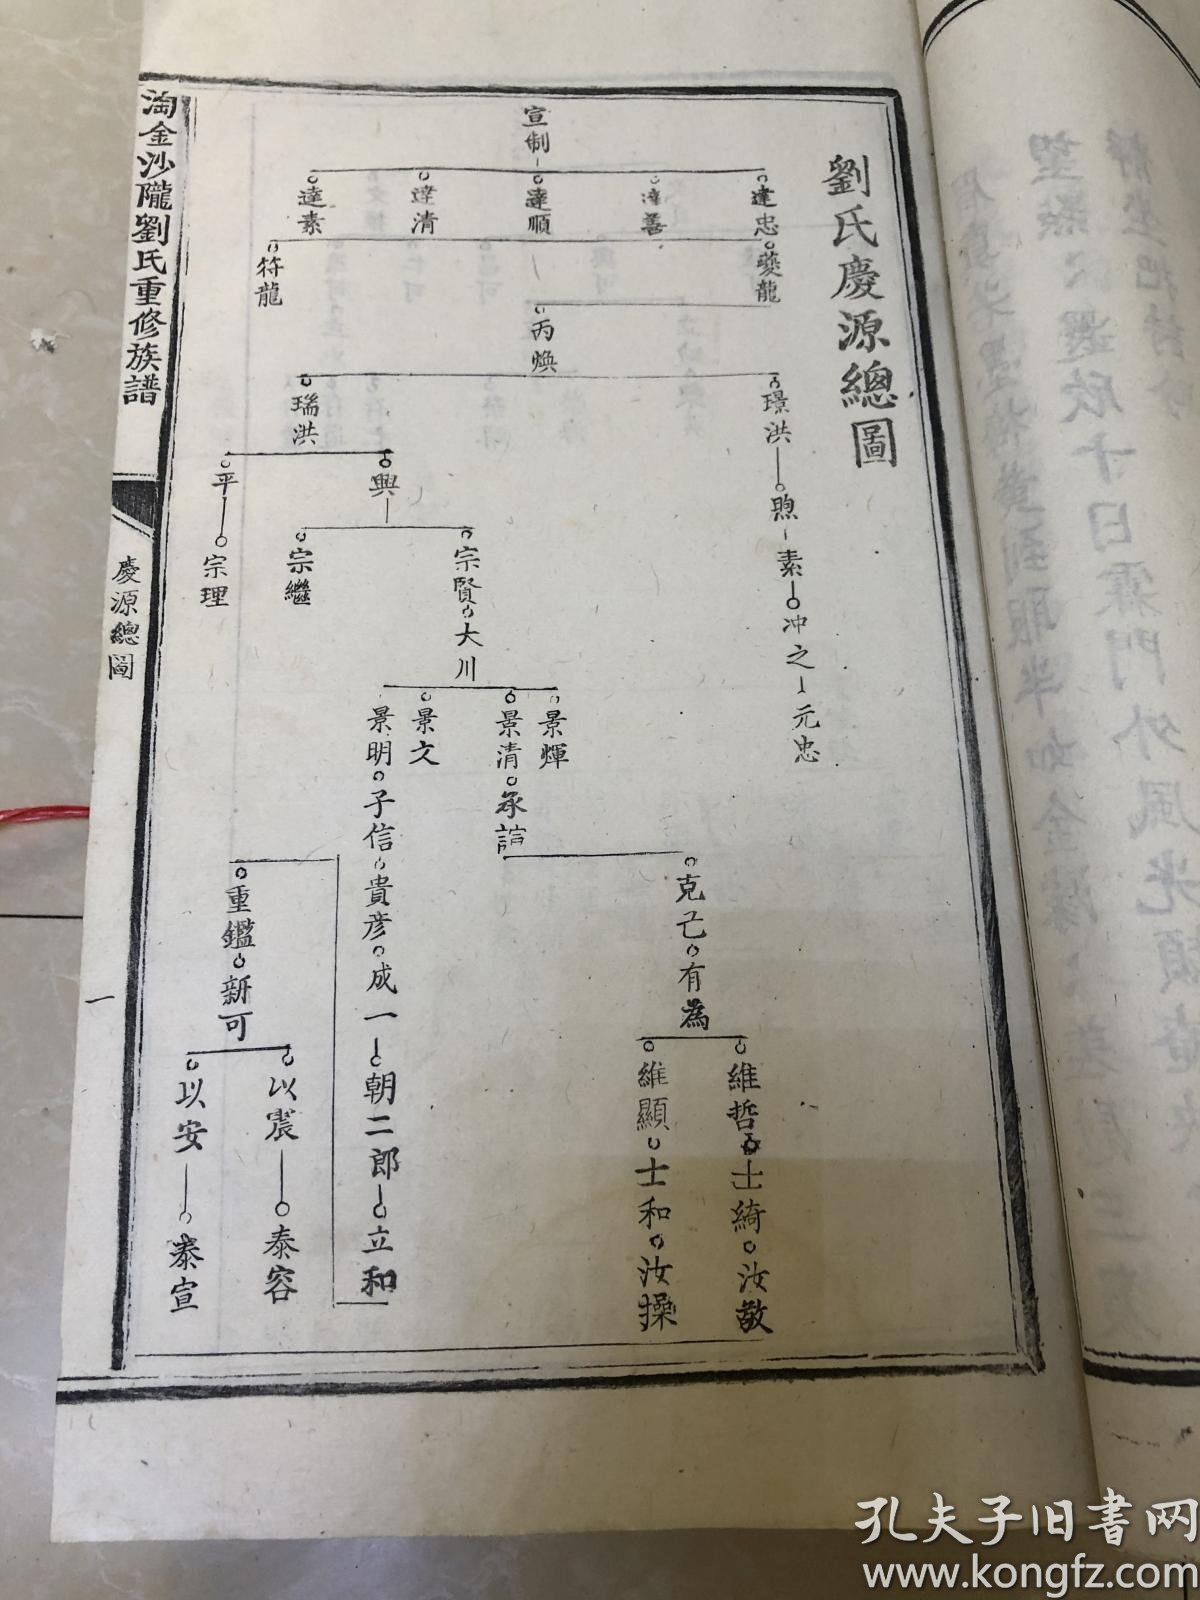 劉氏慶源總圖
宣制
達忠
達善
達順
達清
達素
夔龍
符龍
丙煥
璟洪
瑞洪
煦
素
冲之
元忠
興
平
宗賢
宗繼
宗理
大川
景輝
景清
景文
景明
承誼
子信
貴彦
成一
朝二郎
立和
克己
有為
維哲
維顯
士綺
士和
汝敬
汝操
重鑑
新可
以震
以安
泰容
泰宣
淘金沙隴劉氏重修族譜
慶源總圖
一
孔夫子旧書网
www.kongfz.com